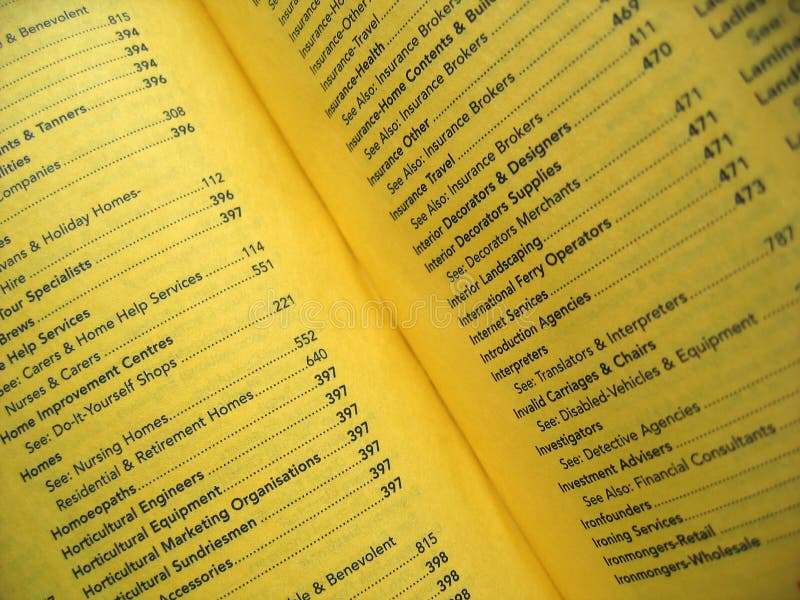 & Benevolent 815
394
394
394
396
nts & Tanners 308
lities 396
ompanies
es
vans & Holiday Homes- 112
Hire 396
Tour Specialists 397
Brews
e Help Services 114
See: Carers & Home Help Services 551
Nurses & Carers
Home Improvement Centres 221
See: Do-It-Yourself Shops
Homes 552
See: Nursing Homes 640
Residential & Retirement Homes 397
Homoeopaths 397
Horticultural Engineers 397
Horticultural Equipment 397
Horticultural Marketing Organisations 397
rticultural Sundriesmen
Accessories 815
le & Benevolent 398
398
Insurance-Other
Insurance-Travel
Insurance-Health
See Also: Insurance Brokers
Insurance-Home Contents & Build
See Also: Insurance Brokers 469
Insurance Other 411
See Also: Insurance Brokers 470
Insurance Travel
See Also: Insurance Brokers
Interior Decorators & Designers 471
Interior Decorators Supplies
See: Decorators Merchants
Interior Landscaping 471
International Ferry Operators 471
Internet Services 471
Introduction Agencies 473
Interpreters
See: Translators & Interpreters 787
Invalid Carriages & Chairs
See: Disabled-Vehicles & Equipment
Investigators
See: Detective Agencies
Investment Advisers
See Also: Financial Consultants
Ironfounders
Ironing Services
Ironmongers-Retail
Ironmongers-Wholesale
Ladies
See:
Lamina
Land